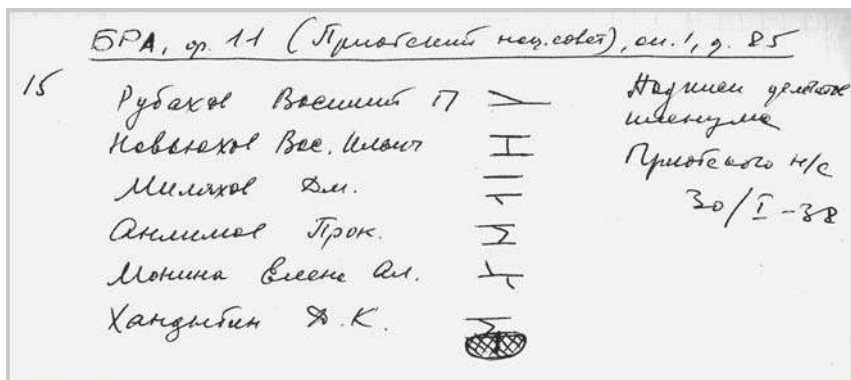 БРА, ор. 11 (Приотский нац. совет), оп. 1, д. 85
15
Рубахов Василий П
Новьюхов Вас. Ильич
Миляхов Дм.
Анлимов Прок.
Монина Елена Ал.
Хандыбин Д. К.
Подписи
пленума
Приотского н/с
30/I-38